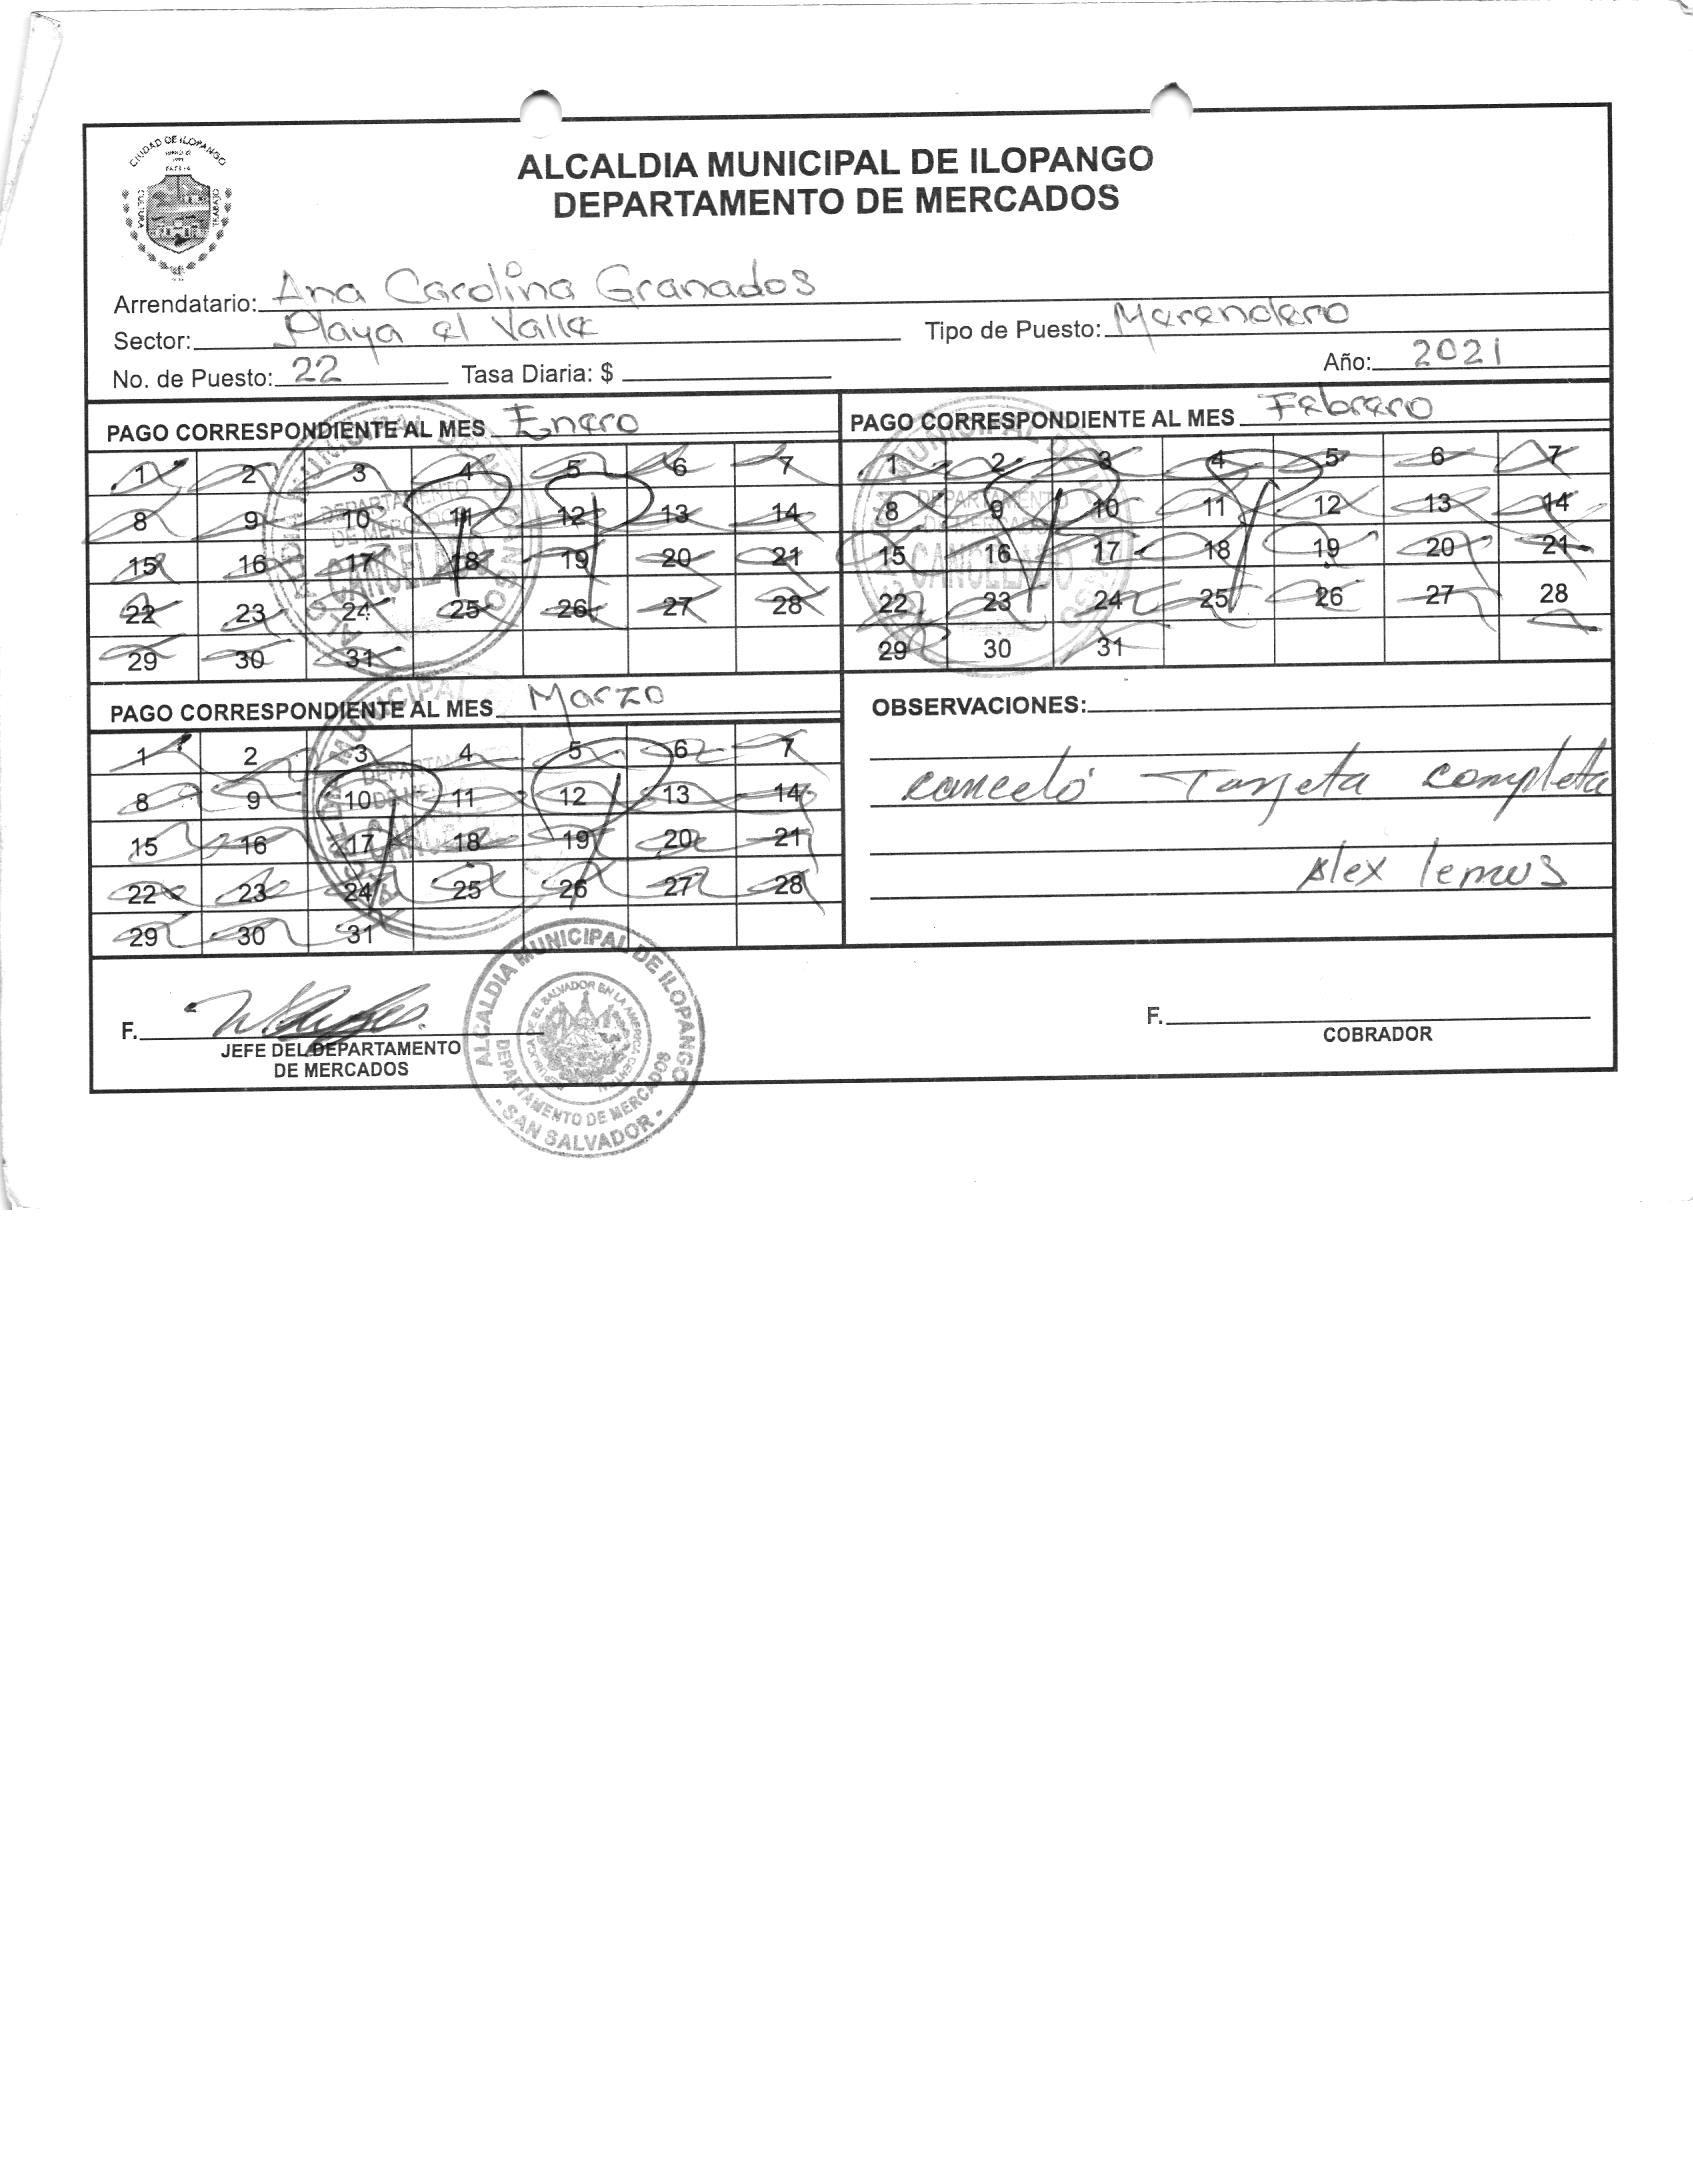 CIUDAD DE ILOPANGO
CULTURA
TRABAJO
ALCALDIA MUNICIPAL DE ILOPANGO
DEPARTAMENTO DE MERCADOS
Arrendatario: Ana Carolina Granados
Sector: Playa el Valle Tipo de Puesto: Merendero
No. de Puesto: 22 Tasa Diaria: $ Año: 2021
PAGO CORRESPONDIENTE AL MES Enero
1 2 3 4 5 6 7
8 9 10 11 12 13 14
15 16 17 18 19 20 21
22 23 24 25 26 27 28
29 30 31
DEPARTAMENTO
DE MERCADOS
CANCELADO
PAGO CORRESPONDIENTE AL MES Febrero
1 2 3 4 5 6 7
8 9 10 11 12 13 14
15 16 17 18 19 20 21
22 23 24 25 26 27 28
29 30 31
DEPARTAMENTO
DE MERCADOS
CANCELADO
PAGO CORRESPONDIENTE AL MES Marzo
1 2 3 4 5 6 7
8 9 10 11 12 13 14
15 16 17 18 19 20 21
22 23 24 25 26 27 28
29 30 31
OBSERVACIONES:
canceló Tarjeta completa
Alex lemus
F.
JEFE DEL DEPARTAMENTO
DE MERCADOS
ALCALDIA MUNICIPAL DE ILOPANGO
DEPARTAMENTO DE MERCADOS
- SAN SALVADOR -
F.
COBRADOR